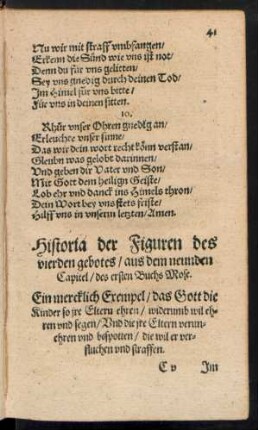 41
Nu wir mit straff vmbfangen/
Erkenn die Sünd wie vns ist not/
Denn du für vns gelitten/
Sey vns gnedig durch deinen Tod/
Im Himel für vns bitte/
Für vns in deinen sitten.
10.
Rhür vnser Ohren gnedig an/
Erleuchte vnser sinne/
Das wir dein wort recht könn verstan/
Gleubn was gelobt darinnen/
Vnd geben dir Vater vnd Son/
Mit Gott dem heilign Geiste/
Lob ehr vnd danck ins Himels thron/
Dein Wort bey vns stets leiste/
Hilff vns in vnserm letzten/Amen.
Historia der Figuren des
vierden gebotes/ aus dem neunden
Capitel/ des ersten Buchs Mose.
Ein mercklich Exempel/das Gott die
Kinder so jre Eltern ehren/ widerumb wil eh-
ren vnd segen/ Vnd die jre Eltern verun-
ehren vnd bespotten/ die wil er ver-
fluchen vnd straffen.
C v Im